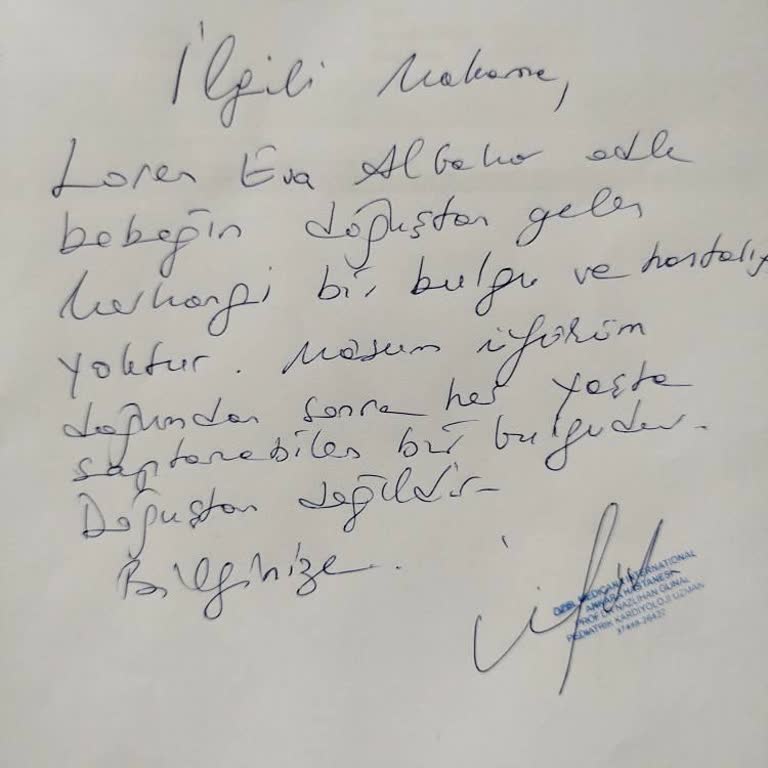 İlgili Makama,
Loren Eva Albeho adlı
bebeğin doğuştan gelen
herhangi bir bulgu ve hastalığı
yoktur. Masum üfürüm
doğumdan sonra her yaşta
saptanabilen bir bulgudur.
Doğuştan değildir.
Bilginize.
ÖZEL MEDICANA INTERNATIONAL
ANKARA HASTANESİ
PROF.DR.NAZLIHAN GÜNAL
PEDİATRİK KARDİYOLOJİ UZMANI